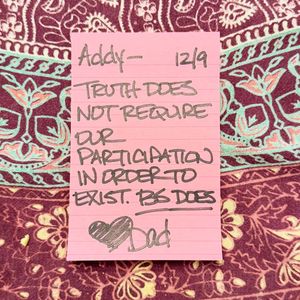 Addy— 12/9
TRUTH DOES
NOT REQUIRE
OUR
PARTICIPATION
IN ORDER TO
EXIST. BS DOES
Dad